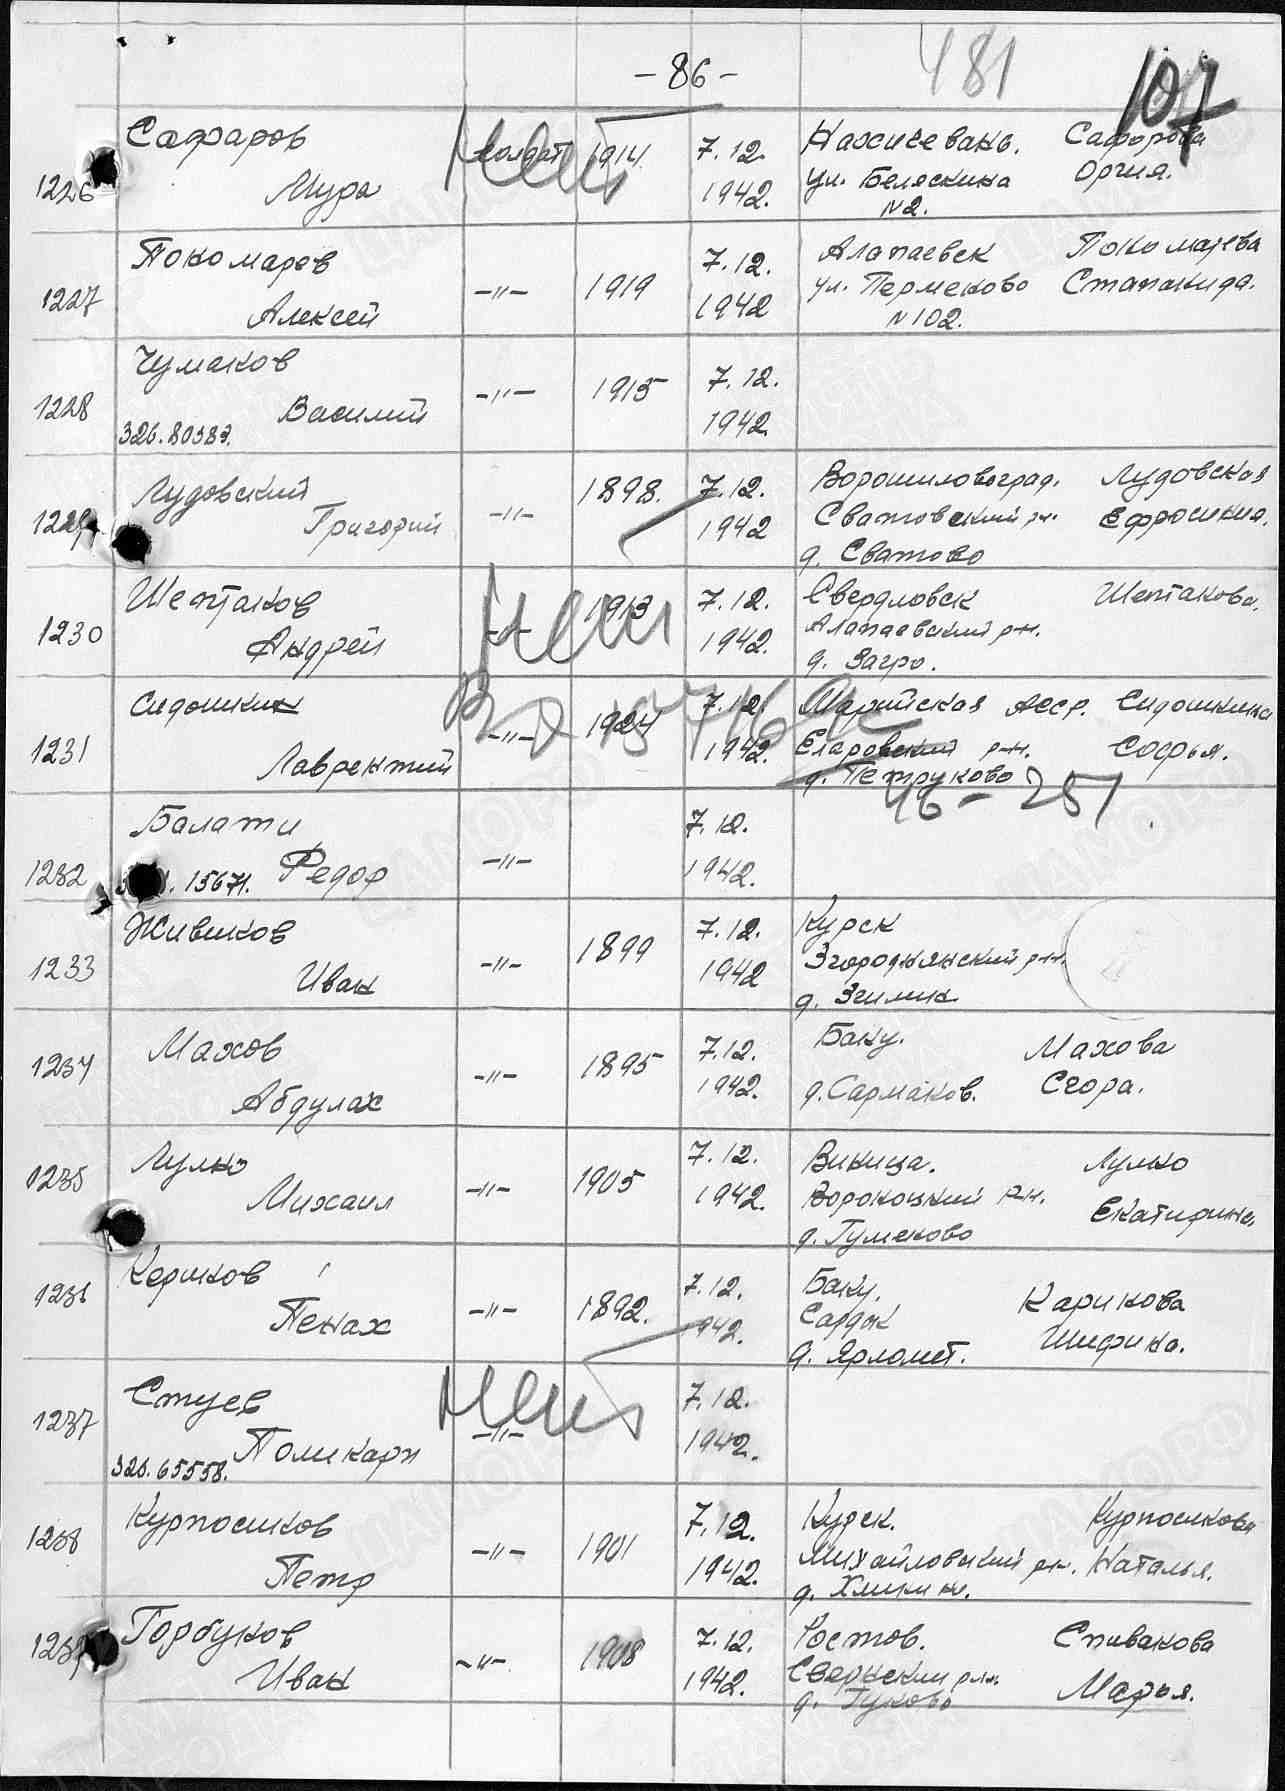 -86-
481
107
1226 Сафаров Мура солдат 1914. 7.12. 1942. Нахичевань. ул. Беляскина №2. Сафорова Оргия.
Нет
1227 Покомарев Алексей -"- 1919 7.12. 1942 Алапаевск ул. Пермеково №102. Покомарева Стапакида.
1228 Чумаков Василий 326.80383. -"- 1915 7.12. 1942.
1229 Лудовский Григорий -"- 1898. 7.12. 1942 Ворошиловоград. Сватовский рн. д. Сватово Лудовская Ефросиния.
1230 Шептаков Андрей -"- 1913 7.12. 1942. Свердловск Алапаевский р-н. д. Загро. Шептакова.
Нет
1231 Сидошкин Лаврентий -"- 1924 7.12. 1942. Марийская АССР. Еларовский р-н. д. Петруково Сидошкина Софья.
46-251
1232 Балати Федор 15671. -"- 7.12. 1942.
1233 Живиков Иван -"- 1899 7.12. 1942 Курск Згороднянский р-н. д. Згилик
1234 Махов Абдулах -"- 1895 7.12. 1942. Баку. д. Сармаков. Махова Сгора.
1235 Лулко Михаил -"- 1905 7.12. 1942. Виница. Вороноцкий р-н. д. Гумеково Лулко Екатирина.
1236 Кериков Пенах -"- 1892. 7.12. 942. Баку. Сардок д. Ярломет. Карикова Ширина.
1237 Стуев Поликарп 326.65558. -"- 7.12. 1942.
Нет
1238 Курпосиков Петр -"- 1901 7.12. 1942. Курск. Михайловский рн. д. Хлинки. Курпосикова Наталья.
1239 Горбуков Иван -"- 1908 7.12. 1942. Ростов. д. Гуково Спивакова Марья.